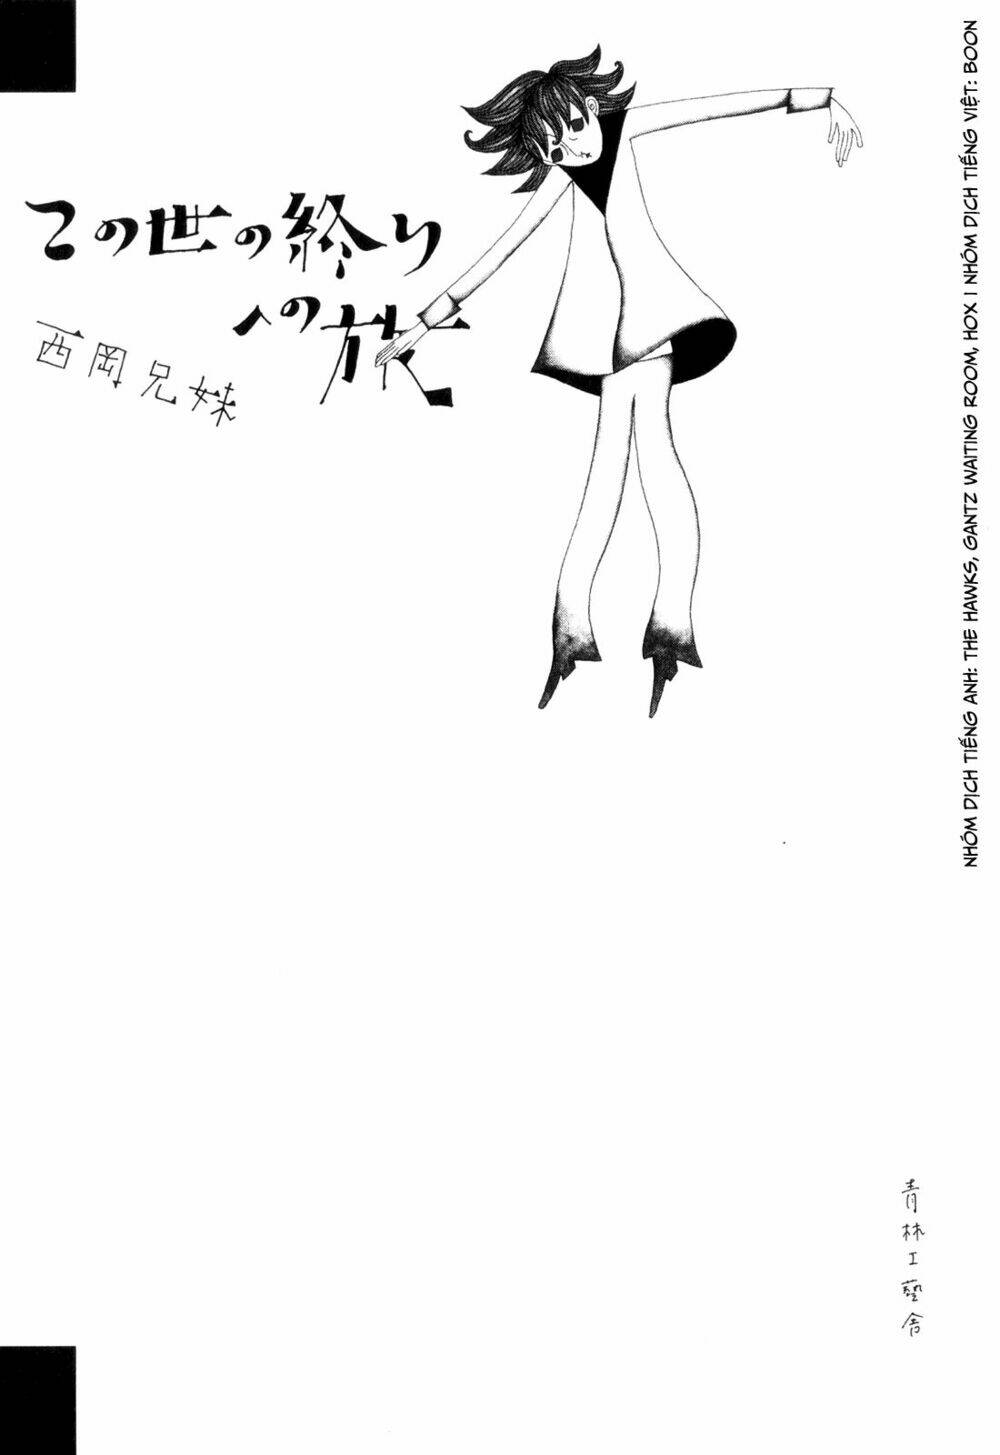 この世の終り
への旅
西岡兄妹
NHÓM DỊCH TIẾNG ANH: THE HAWKS, GANTZ WAITING ROOM, HOX | NHÓM DỊCH TIẾNG VIỆT: BOON
青林工藝舎